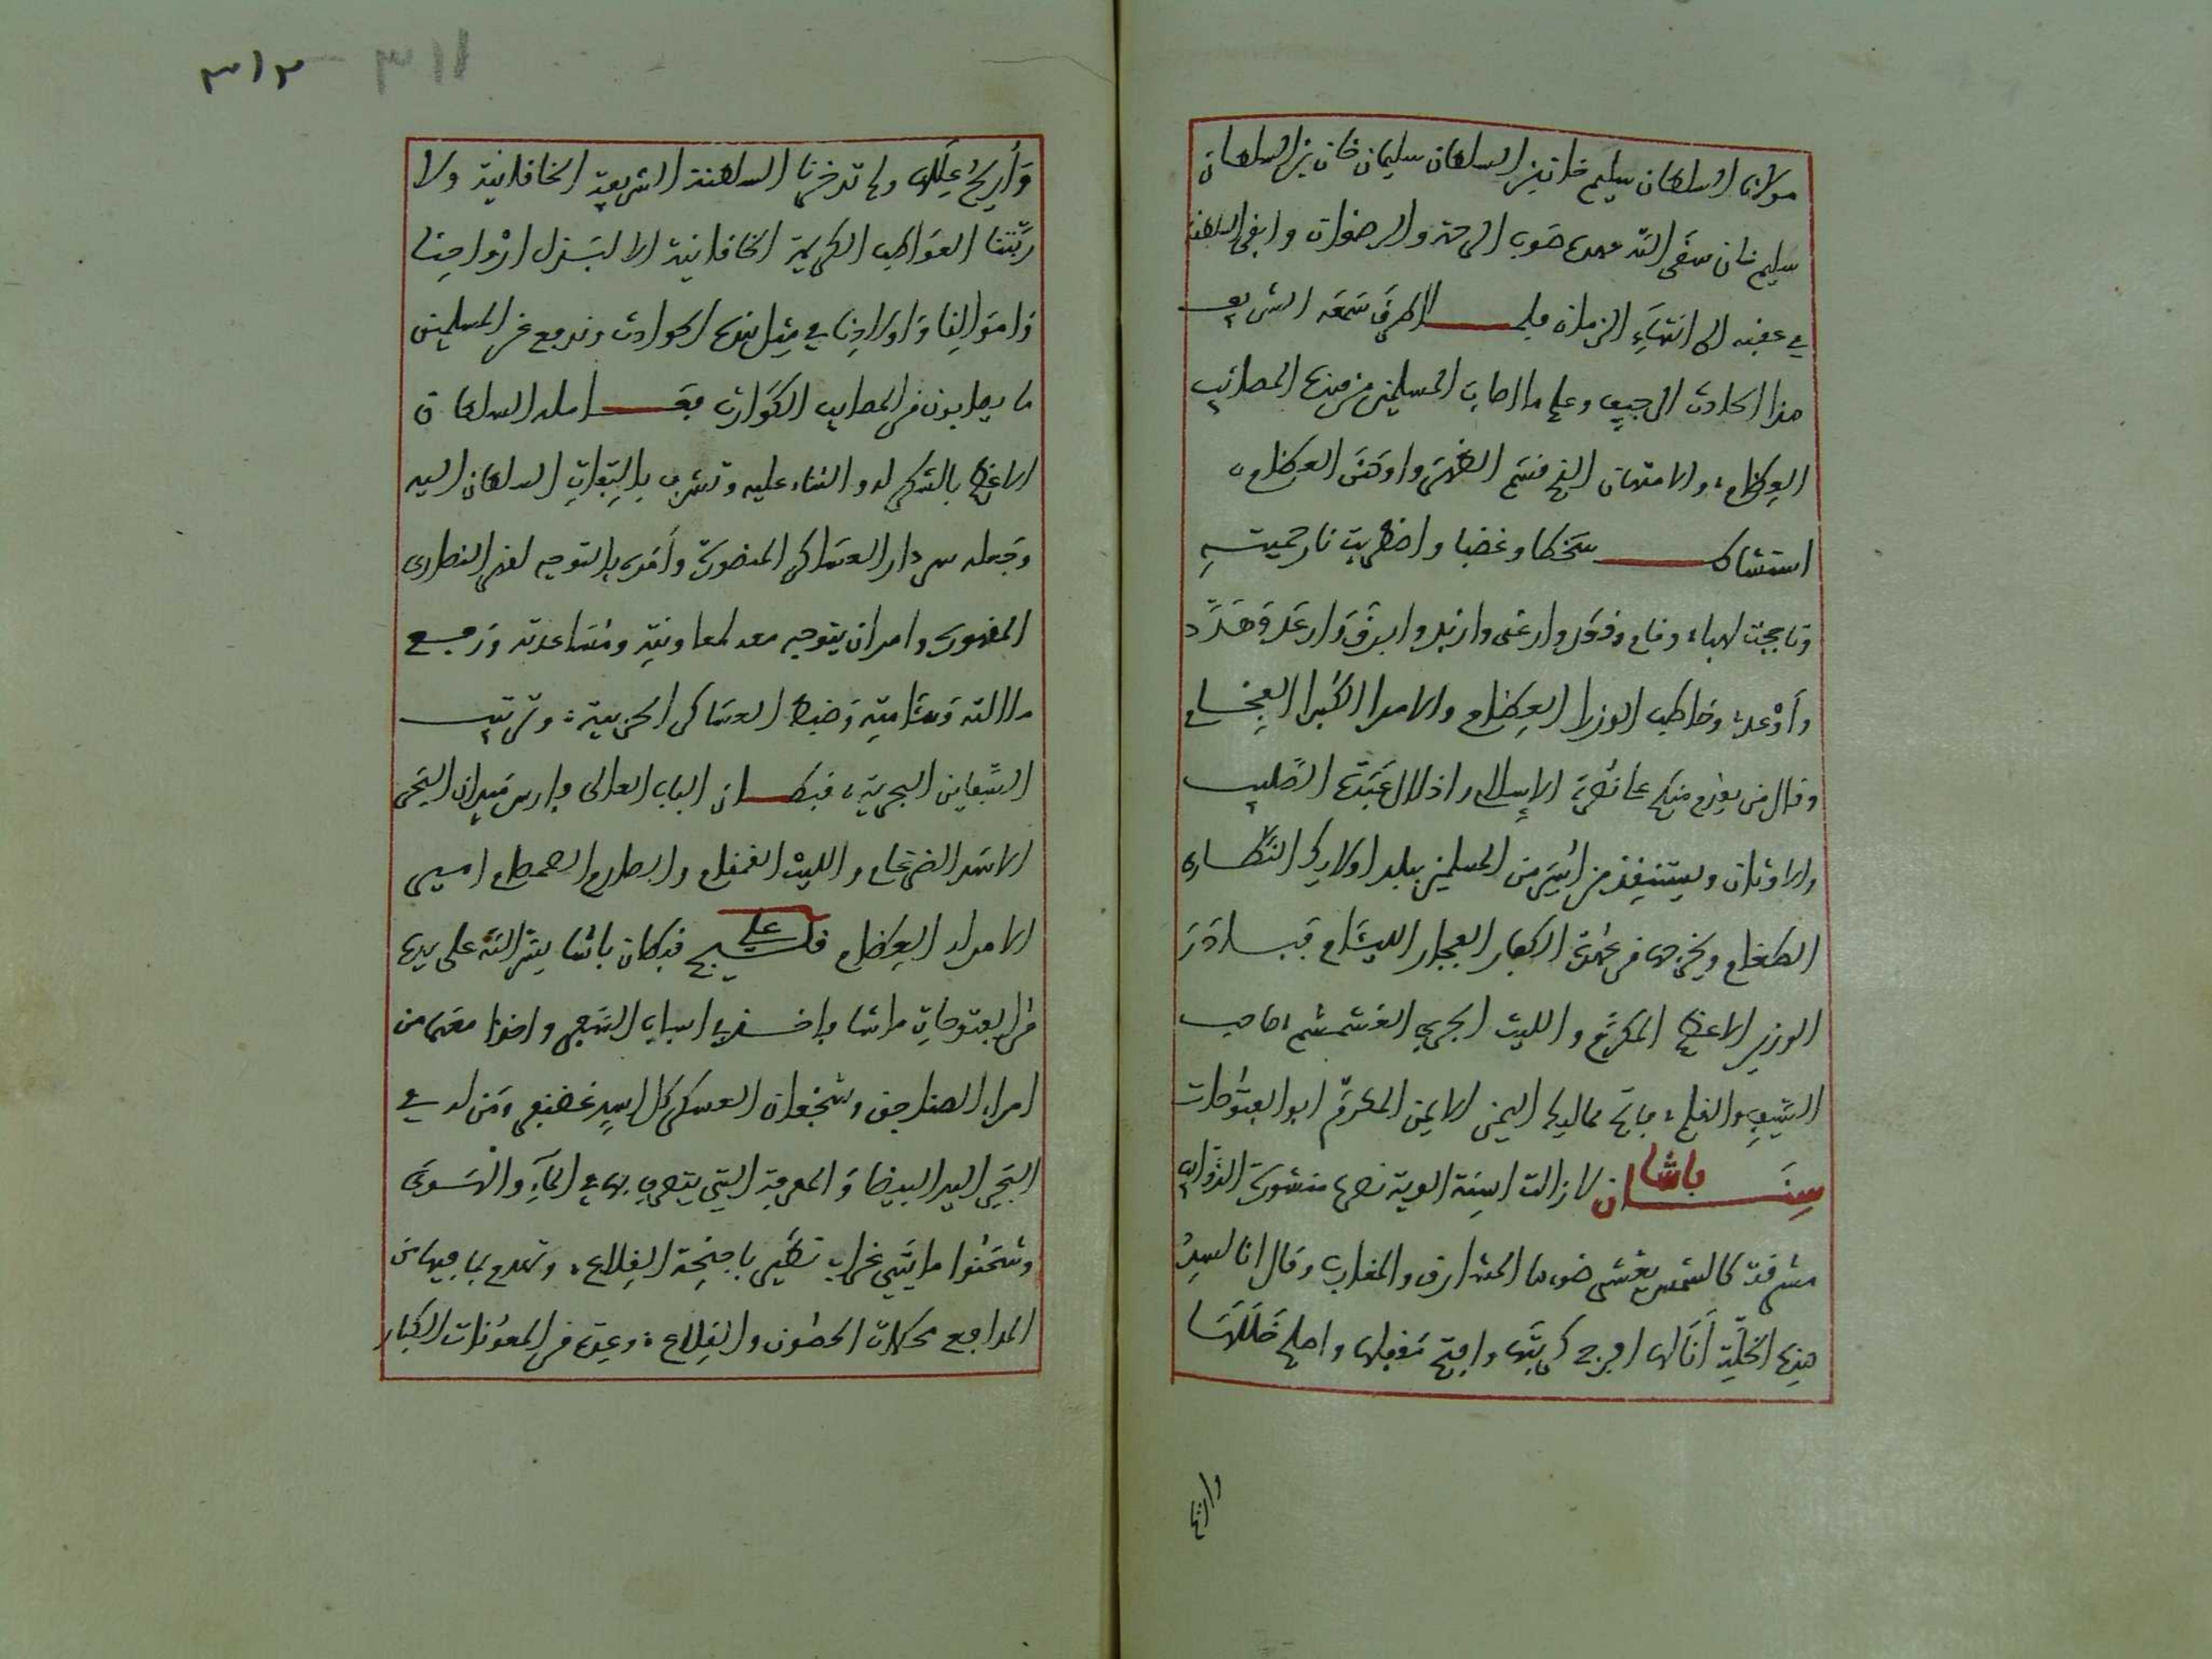 مولانا السلطان سليم خان بن السلطان سليمان خان بن السلطان
سليم خان سقى الله عهده صوب الرحمة والرضوان وابقى السلطنة
في عقبه الى انتهاء الزمان فلما طرق سمعه الشريف
هذا الحادث الرجيف وعلم ما اصاب المسلمين من هذه المصائب
العظام، والامتهان الذي قصم الظهر واوهن العظام،
استشاط سخطا وغضبا واضطربت نار حميته
وتاججت لهبا، وقام وقعد وارغى وازبد وابرق وارعد وهدد
وأوعد، وخاطب الوزرا العظام والامرا الكبرا الفخام
وقال من يقدم منكم على نصرة الاسلام واذلال عبدة الصليب
والاوثان ويستنقذ من اسر من المسلمين بيد اولائك النصارى
الطغام ويخرجهم من عهدة الكفار الفجار الليئام فبادر
الوزير الاعظم المكرم والليث الجري الغشمشم صاحب
السيف والقلم، فاتح ممالك اليمن الايمن المكرم ابو الفتوحات
سنان باشا لا زالت اسنة الوية نصره منشورة الذوائب
مشرقة كالشمس يغشى ضوها المشارق والمغارب وقال انا لسد
هذه الخلة أنا لها افرج كربتها وافتح مقفلها واصلح خللها
وازيح
٣١١ ٣١٢
وأزيح عللها ولم تدخرنا السلطنة الشريفة الخاقانية ولا
ربتنا العواطف الكريمة الخاقانية الا لبذل ارواحنا
واموالنا واولادنا في مثل هذه الحوادث وندفع عن المسلمين
ما يصابون من المصايب الكوارث فقابله السلطان
الاعظم بالشكر له والثناء عليه وتشرف بالتفات السلطان اليه
وجعله سردار العساكر المنصورة وأمره بالتوجه لقهر النصارى
المقهورة وامر ان يتوجه معه لمعاونته ومساعدته ورفع
ملالته وسئامته وضبط العساكر الحربية، وترتيب
السفاين البحرية، قبطان الباب العالى وفارس ميدان البحر
الاسد الضرغام والليث القمقام والصارم الصمصام امير
الامراء العظام قلج علي قبطان باشا يسر الله على يده
من الفتوحات ما شا فاخذ في اسباب السفر واخذا معهما من
امراء الصناجق وشجعان العسكر كل اسد غضنفر ومن له في
البحر اليد البيضا والمعرفة التي يتصرف بها في الماء والهوى
وشحنوا مايتي غراب تطير باجنحة القلاع، وتهدم بما فيها من
المدافع محكمات الحصون والقلاع، وعدة من المعونات الكبار